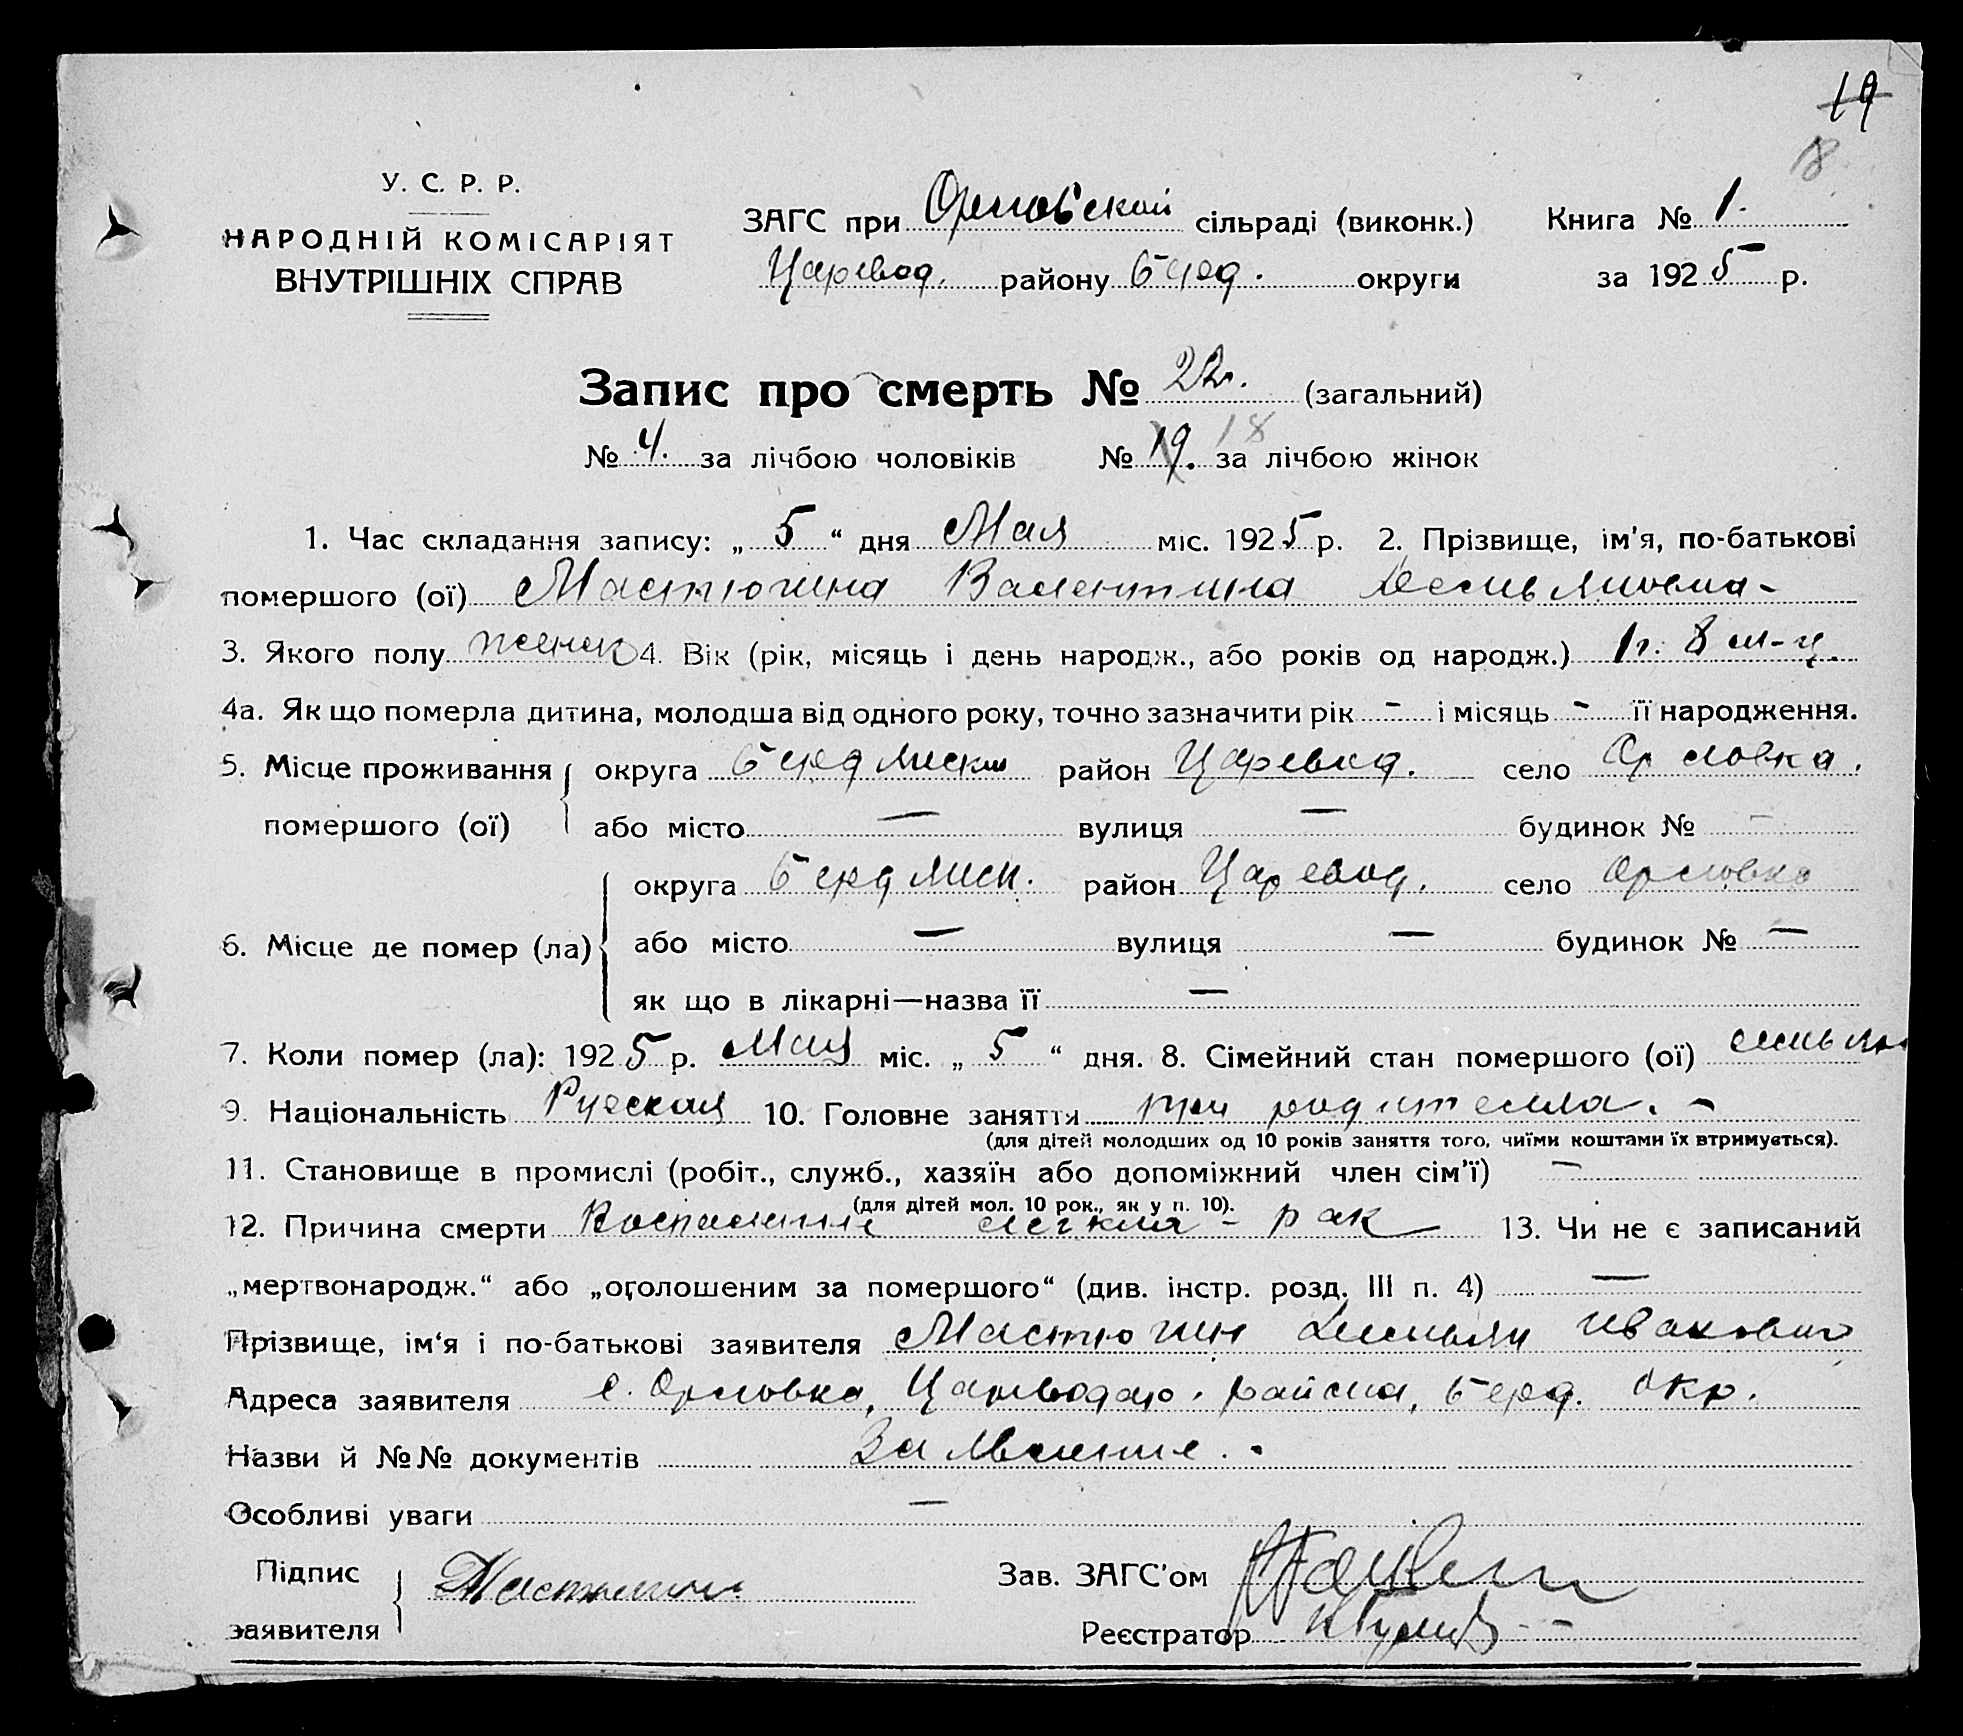 19
18
У. С. Р. Р.
НАРОДНІЙ КОМІСАРІЯТ
ВНУТРІШНІХ СПРАВ
ЗАГС при Орловской сільраді (виконк.)
Царевод. району Берд. округи
Книга № 1.
за 1925 р.
Запис про смерть № 22. (загальний)
№ 4. за лічбою чоловіків № 19. 18 за лічбою жінок
1. Час складання запису: „ 5 “ дня Мая міс. 1925 р. 2. Прізвище, ім'я, по-батькові
помершого (ої) Мастюгина Валентина Демьяновна -
3. Якого полу женск 4. Вік (рік, місяць і день народж., або років од народж.) 1 г. 8 м-ц.
4а. Як що померла дитина, молодша від одного року, точно зазначити рік - і місяць - її народження.
5. Місце проживання округа Бердянск район Царевод. село Орловка.
помершого (ої) або місто — вулиця — будинок № —
округа Бердянск. район Царевод. село Орловка
6. Місце де помер (ла) або місто — вулиця — будинок № —
як що в лікарні—назва її —
7. Коли помер (ла): 1925 р. Мая міс. „ 5 “ дня. 8. Сімейний стан помершого (ої)
9. Національність Руская 10. Головне заняття при родителях. -
(для дітей молодших од 10 років заняття того, чиїми коштами їх втримується).
11. Становище в промислі (робіт., служб., хазяїн або допоміжний член сім'ї) —
(для дітей мол. 10 рок., як у п. 10).
12. Причина смерти Воспаление легких - рак 13. Чи не є записаний
„мертвонародж.“ або „оголошеним за помершого“ (див. інстр. розд. III п. 4) —
Прізвище, ім'я і по-батькові заявителя Мастюгин Демьян Иванович
Адреса заявителя с. Орловка, Царевод. района, Берд. окр.
Назви й №№ документів Заявление.
Особливі уваги —
Підпис
заявителя Мастюгин
Зав. ЗАГС'ом
Реєстратор